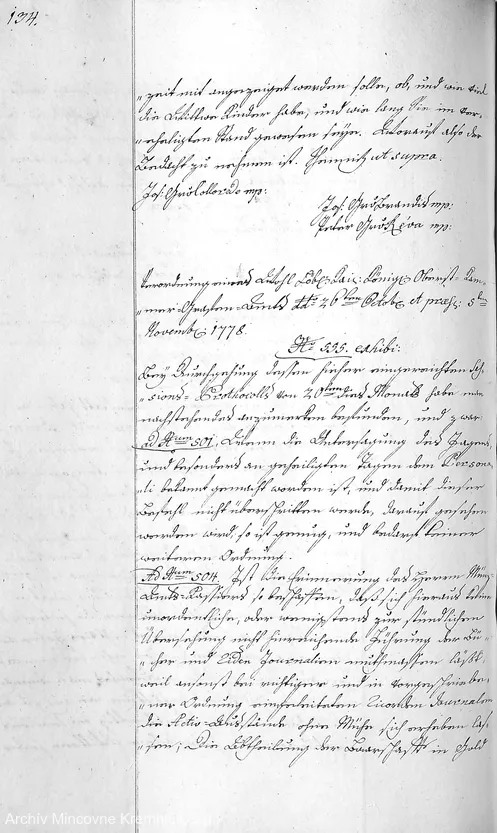 134.
"zeit mit angezeiget werden solle, ob, und wie viel
die Wittwe Kinder habe, und wie lang Sie im ver-
"ehelichten Stand gewesen seye. Worauf also der
Bedacht zu nehmen ist. Schemnitz ut supra.
Jos: Gr: Colloredo mp:
Jos: Gr: Brandis mp:
Peter Gr: Réva mp:
Verordnung eines Wohl Löbl: Kais: Königl: Oberst-Kam-
mer Grafen Amts dd: 26ten Octobr et præs: 5t
Novembr: 1778.
No 535. exhibi:
Bey Durchgehung dessen hieher eingereichten Ses-
"sions-Prothocolls von 20ten dies Monats habe man
nachstehendes anzumerken befunden, und zwar:
ad Num 501. Wenn die Untersagung des Jagens,
und besonders an geheiligten Tagen dem Perso-
li bekant gemacht worden ist, und damit dieser
Befehl nicht überschritten werde, darauf gesehen
werden wird, so ist genug, und bedarf keiner
weiteren Ordnung.
Ad Num 504. Ist die Erinnerung des Herrn Münz-
Amts-Kassiers so beschaffen, daß sich hieraus keine
unordentliche, oder wenigstens zur stündlichen
Übersehung nicht hinreichende Führung der Bü-
"cher und Journalien muthmassen läßt,
weil ansonst bei richtiger und in vorgeschriebe-
"ner Ordnung eingeleiteten Journalen
die Activ-Ausstände ohne Mühe sich erheben las-
"sen; Die Abtheilung der Baarschaft in Gold
Archiv Mincovne Kremnica